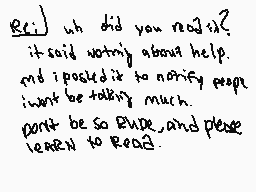 Re:] uh did you read it?
it said wotnig about help.
and i posted it to notify peope
i wont be talking much.
Dont be so RUDE, and please
leaRN to Read.